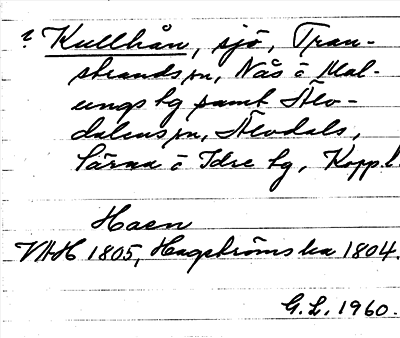 ? Kullhån, sjö, Tran-
strands sn, Nås o Mal-
ungs tg samt Älv-
dalens sn, Älvdals,
Särna o Idre tg, Kopp.l.
Haen
VAH 1805, Hagströms ka 1804.
G.L. 1960.